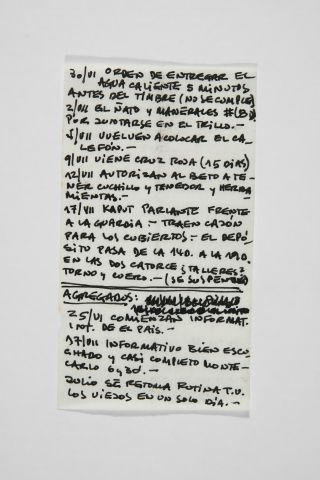 30/VI ORDEN DE ENTREGAR EL
AGUA CALIENTE 5 MINUTOS
ANTES DEL TIMBRE (NO SE CUMPLE)
2/VII EL ÑATO Y MANERALES #
POR JUNTARSE EN EL TRILLO.-
5/VII VUELVEN A COLOCAR EL CA-
LEFÓN.-
9/VII VIENE CRUZ ROJA (15 DÍAS)
12/VII AUTORIZAN AL BETO A TE-
NER CUCHILLO Y TENEDOR Y HERRA
MIENTAS.-
17/VII KAPUT PARLANTE FRENTE
A LA GUARDIA - TRAEN CAJÓN
PARA LOS CUBIERTOS.- EL DEPÓ-
SITO PASA DE LA 14D. A LA 19D.
EN LAS DOS CATORCES ¿TALLERES?
TORNO Y CUERO.- (SE SUSPENDE)
AGREGADOS:
25/VI COMIENZAN INFORMAT.
INT. DE EL PAÍS.-
17/VII INFORMATIVO BIEN ESCU-
CHADO Y CASI COMPLETO MONTE-
CARLO 6 y 30.-
JULIO SE RETOMA RUTINA T.V.
LOS VIEJOS EN UN SOLO DÍA.-